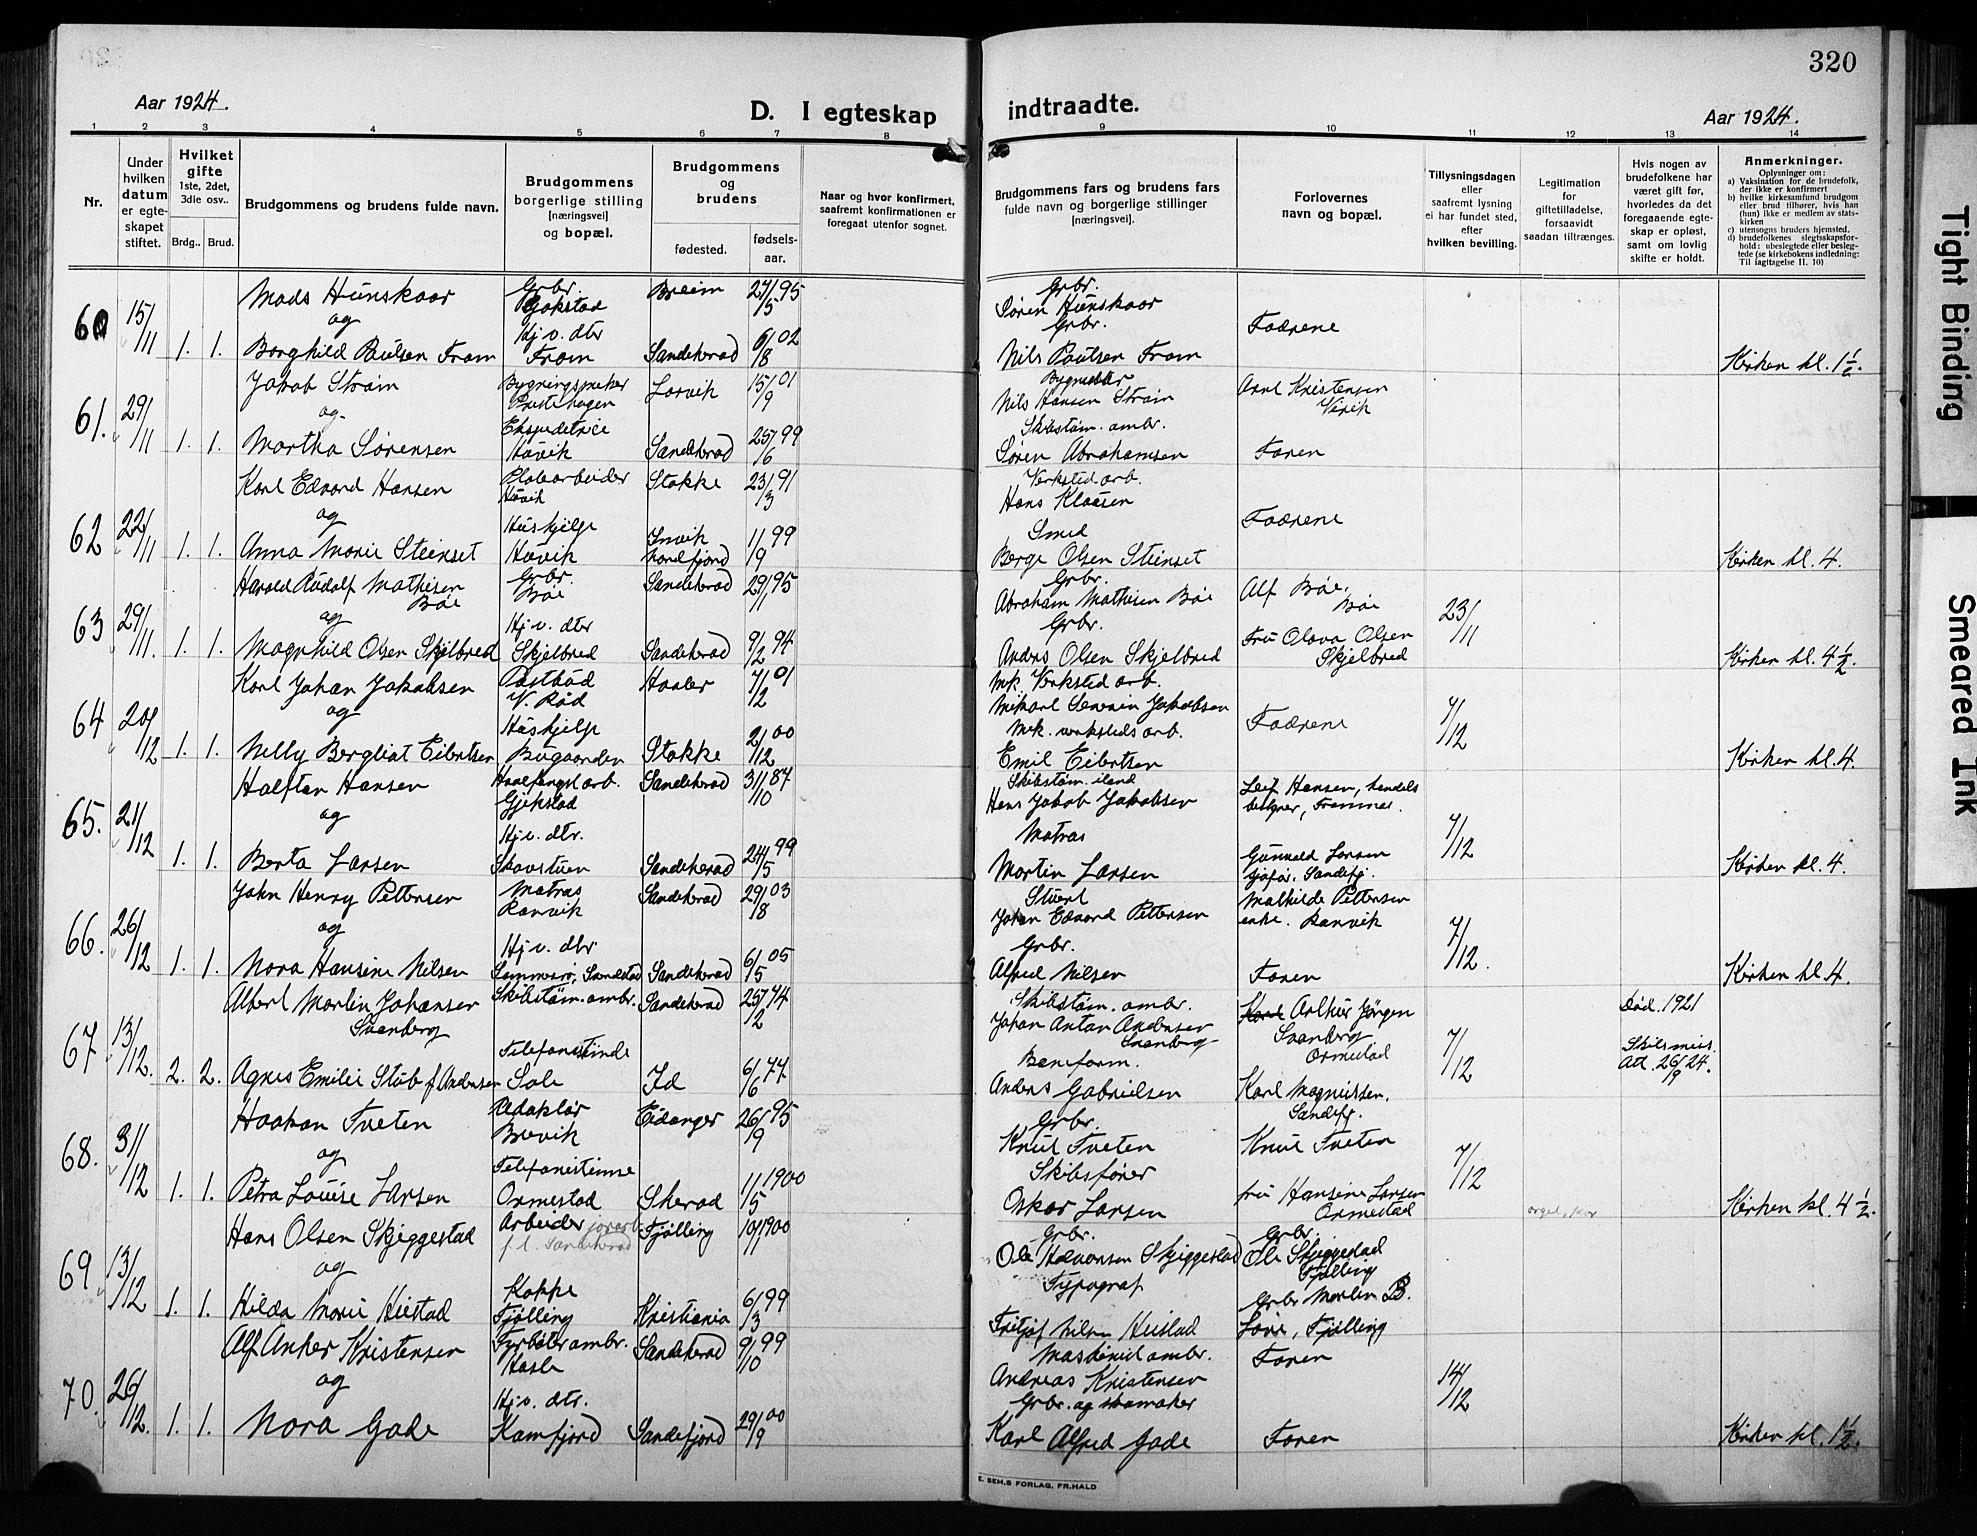 320
Aar 1924.
D. I egteskap indtraadte.
Aar 1924.
1 2 3 4 5 6 7 8 9 10 11 12 13 14
Nr.
Under hvilken datum er egteskapet stiftet.
Hvilket gifte 1ste, 2det, 3die osv..
Brdg.. Brud.
Brudgommens og brudens fulde navn.
Brudgommens borgerlige stilling [næringsvei] og bopæl.
Brudgommens og brudens
fødested.
fødselsaar.
Naar og hvor konfirmert, saafremt konfirmationen er foregaat utenfor sognet.
Brudgommens fars og brudens fars fulde navn og borgerlige stillinger [næringsvei].
Forlovernes navn og bopæl.
Tillysningsdagen eller saafremt lysning ei har fundet sted, efter hvilken bevilling.
Legitimation for giftetilladelse, forsaavidt saadan tiltrænges.
Hvis nogen av brudefolkene har været gift før, hvorledes da det foregaaende egteskap er opløst, samt om lovlig skifte er holdt.
Anmerkninger.
Oplysninger om:
a) Vaksination for de brudefolk, der ikke er konfirmert
b) hvilke kirkesamfund brudgom eller brud tilhører, hvis han (hun) ikke er medlem av statskirken
c) utensogns bruders hjemsted.
d) brudefolkenes slegtsskapsforhold: ubeslegtede eller beslegtede (se kirkebokens indledning: Til iagttagelse II. 10)
60 15/11 1. 1. Mads Hunskaar Grbr. Gjokstad Breim 27/5 95 Grbr. Søren Hunskaar Fædrene
og
Borghild Paulsen Fram Hj.v. dtr Fram Sandeherad 6/8 02 Grbr. Nils Paulsen Fram Kirken kl. 1½.
61. 29/11 1. 1. Jakob Strøm Prestehagen Larvik 15/9 01 Nils Hansen Strøm Kristensen Virik
og
Martha Sørensen Ekspeditrice Havik Sandeherad 25/6 99 Skibstøm. ambr. Søren Abrahamsen Faren
62 22/11 1. 1. Karl Edvard Hansen Stokke 23/3 91 Verksted arb. Hans Klausen Fædrene
og
Anna Marie Steinset Hushjelp Havik nordfjord 11/9 99 Smed Børge Olsen Steinset Kirken kl. 4.
63 29/11. 1. 1. Harald Rudolf Mathisen Bøe Grbr. Bøe Sandeherad 29/11 95 Grbr. Abraham Mathisen Bøe Alf Bøe, Bøe 23/11
og
Magnhild Olsen Skjelbred Hj.v. dtr Skjelbred Sandeherad 9/2 94 Grbr. Anders Olsen Skjelbred Fru Olava Olsen Skjelbred Kirken kl. 4½.
64 20/12 1. 1. Karl Johan Jakobsen Postbud V. Rød 7/2 01 mk. Verksted arb. Mikael Severin Jakobsen Fædrene 7/12
og
Nelly Bergliot Eilertsen Hushjelp Bugaarden Stokke 2/12 00 mek. verksteds arb. Emil Eilertsen Kirken kl. 4.
65. 21/12 1. 1. Halftan Hansen Hvalfangst arb. Gjøkstad Sandeherad 31/10 87 Skibstøm. iland Hans Jakob Jakobsen Leif Hansen, handels 7/12
og
Berta Larsen Hj.v. dtr. Skaustuen Sandeherad 24/5 99 Matros Martin Larsen Gunvald Larsen Sandefj. Kirken kl. 4.
66. 26/12 1. 1. John Henry Pettersen Matros Ranvik Sandeherad 29/8 03 Stuert Johan Edvard Pettersen Mathilde Pettersen enke. Ranvik 7/12.
og
Nora Hansine Nilsen Hj.v. dtr. Sandeherad 6/5 05 Grbr. Alfred Nilsen Faren Kirken kl. 4.
67 13/12. 2. 2. Albert Martin Johansen Svanberg Skibstøm. ambr. Sandeherad 25/2 74 Skibstøm. ambr. Johan Anton Andersen Svanberg Karl Arthur Jørgen Svanberg Ormestad 7/12 død. 1921
Agnes Emilie Stub f. Andersen Telefonistinde Sole Id 6/6 77 Anders Gabrielsen Karl Magnussen, Sandefj. Skilsmiss. Att. 26/9 24.
68. 31/12 1. 1. Haakon Tveten Redaktør Brevik Eidanger 26/9 95 Grbr. Knut Tveten Knut Tveten 7/12
og
Petra Louise Larsen Telefonistinne Ormestad Sherad 11/5 1900 Skibsfører Oskar Larsen fru Hansine Larsen Ormestad Kirken kl. 4½.
69 13/12 1. 1. Hans Olsen Skjeggestad Arbeider Sandeherad Tjølling 10/11 1900 Grbr. Skjeggestad Grbr. Ole Skjeggestad Tjølling
og
Hilda Marie Heistad Kokke Tjølling Kristiania 6/3 99 Typograf Fritjof Nilsen Heistad Grbr Martin B. Tjølling
70. 26/12. 1. 1. Alf Anker Kristensen Fyrbøter ambr. Hasle Sandeherad 9/10 99 Maskinist ambr. Andreas Kristensen Faren 14/12
og
Nora Gade Hj.v. dtr. Kamfjord Sandefjord 29/9 00 Grbr. og skomaker Karl Alfred Gade Faren Kirken kl. 1½.
E. SEM.S FORLAG, FR.HALD
Tight Binding
Smeared Ink